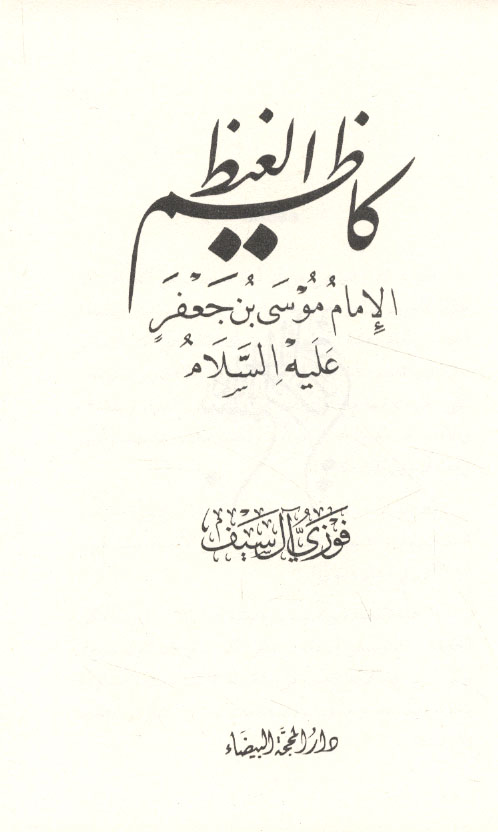 كاظم الغيظ
الإمامُ مُوْسَى بْن جَعْفَرٍ
عَلَيهِ السَّلَامُ
فَوْزِي آل سَيف
دار المحجّة البيضاء